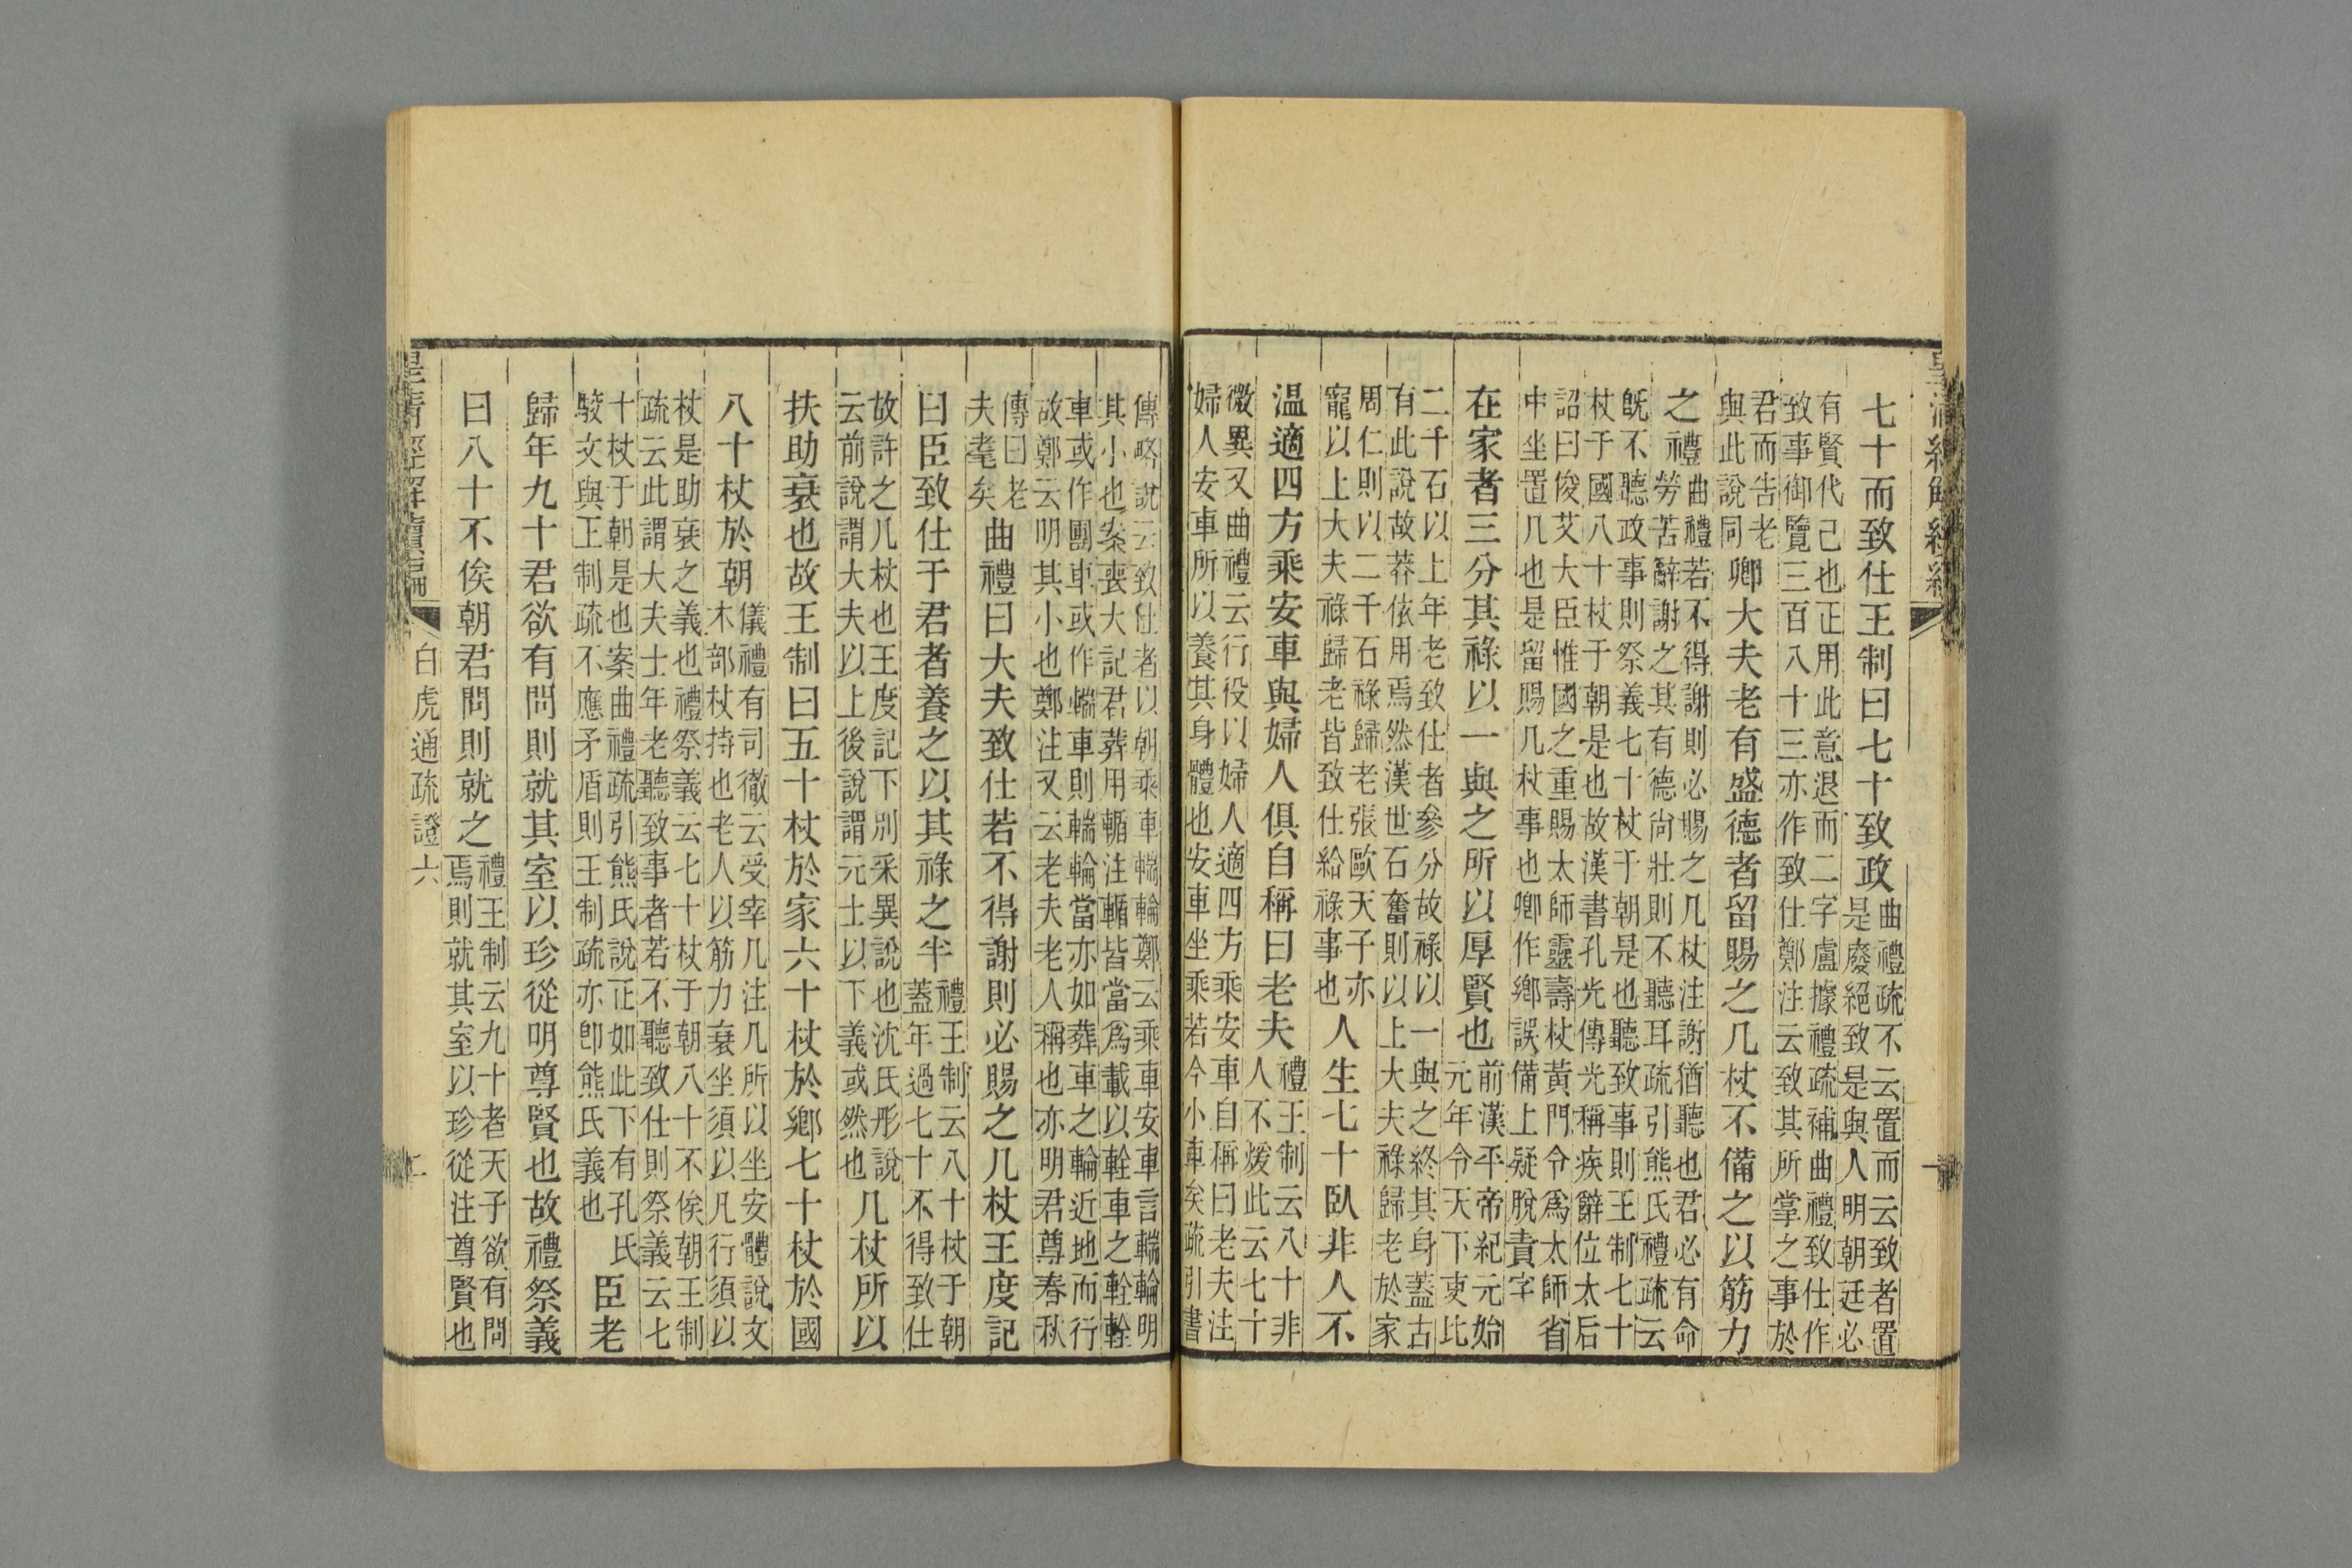 七十而致仕王制曰七十致政曲禮疏不云置而云致者置
是廢絕致是與人明朝廷必
有賢代己也正用此意退而二字盧據禮疏補曲禮致仕作
致事御覽三百八十三亦作致仕鄭注云致其所掌之事於
君而告老
與此說同卿大夫老有盛德者留賜之几杖不備之以筋力
之禮曲禮若不得謝則必賜之几杖注謝猶聽也君必有命
勞苦辭謝之其有德尙壯則不聽耳疏引熊氏禮疏云
旣不聽政事則祭義七十杖于朝是也聽致事則王制七十
杖于國八十杖于朝是也故漢書孔光傳光稱疾辭位太后
詔曰俊艾大臣惟國之重賜太師靈壽杖黃門令爲太師省
中坐置几也是留賜几杖事也卿作鄉誤備上疑脫責字
在家者三分其祿以一與之所以厚賢也前漢平帝紀元始
元年令天下吏比
二千石以上年老致仕者參分故祿以一與之終其身蓋古
有此說故莽依用焉然漢世石奮則以上大夫祿歸老於家
周仁則以二千石祿歸老張歐天子亦
寵以上大夫祿歸老皆致仕給祿事也人生七十臥非人不
温適四方乘安車與婦人俱自稱曰老夫禮王制云八十非
人不煖此云七十
微異又曲禮云行役以婦人適四方乘安車自稱曰老夫注
婦人安車所以養其身體也安車坐乘若今小車矣疏引書
傳略說云致仕者以朝乘車輲輪鄭云乘車安車言輲輪明
其小也案喪大記君葬用輴注輴皆當爲載以輇車之輇輇
車或作團車或作輲車則輲輪當亦如葬車之輪近地而行
故鄭云明其小也鄭注又云老夫老人稱也亦明君尊春秋
傳曰老
夫耄矣曲禮曰大夫致仕若不得謝則必賜之几杖王度記
曰臣致仕于君者養之以其祿之半禮王制云八十杖于朝
蓋年過七十不得致仕
故許之几杖也王度記下別采異說也沈氏彤說
云前說謂大夫以上後說謂元士以下義或然也几杖所以
扶助衰也故王制曰五十杖於家六十杖於鄉七十杖於國
八十杖於朝儀禮有司徹云受宰几注几所以坐安體說文
木部杖持也老人以筋力衰坐須以几行須以
杖是助衰之義也禮祭義云七十杖于朝八十不俟朝王制
疏云此謂大夫士年老聽致事者若不聽致仕則祭義云七
十杖于朝是也案曲禮疏引熊氏說正如此下有孔氏
駮文與王制疏不應矛盾則王制疏亦卽熊氏義也臣老
歸年九十君欲有問則就其室以珍從明尊賢也故禮祭義
曰八十不俟朝君問則就之禮王制云九十者天子欲有問
焉則就其室以珍從注尊賢也
皇淸經解續編
白虎通疏證六
二